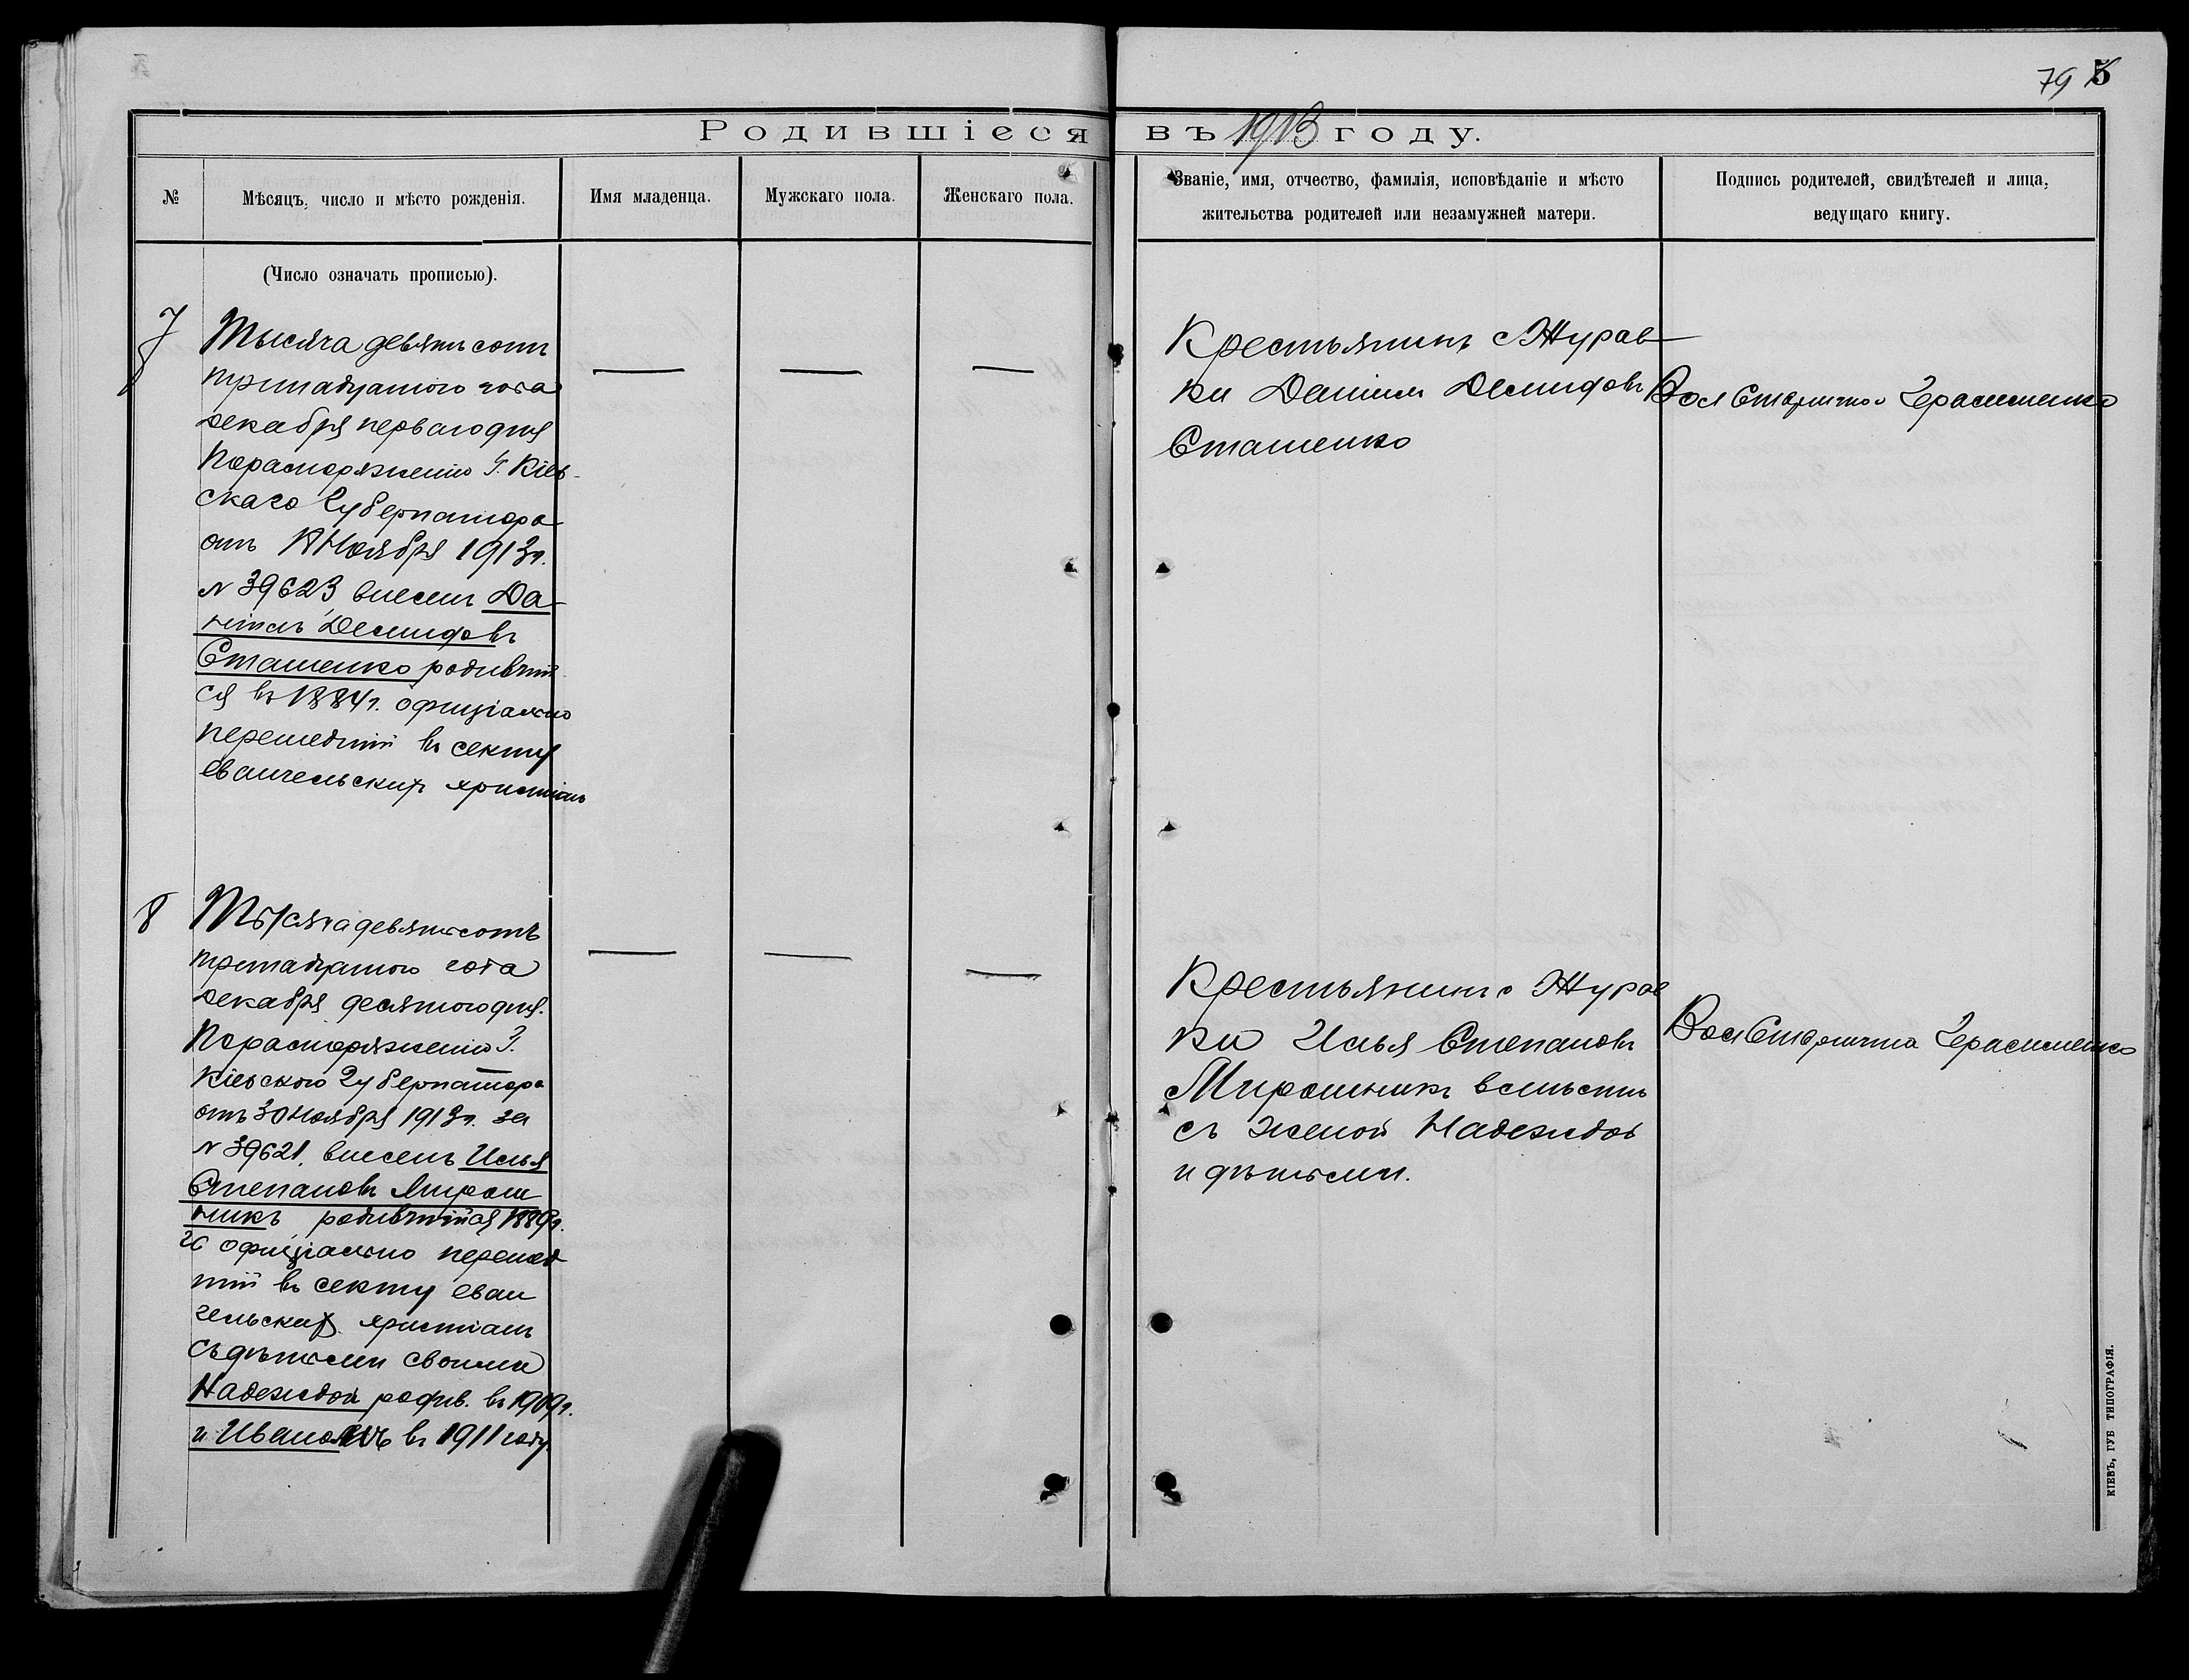 79 5
Родившіеся въ 1913 году.
№
Мѣсяцъ, число и мѣсто рожденія.
Имя младенца.
Мужскаго пола.
Женскаго пола.
Званіе, имя, отчество, фамилія, исповѣданіе и мѣсто
жительства родителей или незамужней матери.
Подпись родителей, свидѣтелей и лица,
ведущаго книгу.
(Число означать прописью).
7
Тысяча девятьсотъ
тринадцатого года
декабря перваго дня
По распоряженію Г. Кіев-
скаго Губернатора
отъ Ноября 1913 г.
№ 39623 внесенъ Да-
ніилъ Демидовъ
Сташенко родившій
ся въ 1884 г. офиціально
перешедшій въ секту
евангельскихъ христіанъ
— — —
Крестьянинъ с Журав
ки Даніилъ Демидовъ
Сташенко
Вол Старшина Герасименко
8
Тысяча девятьсотъ
тринадцатого года
декабря десятого дня.
По распоряженію Г.
Кіевского Губернатора
отъ 30 Ноября 1913 г. за
№ 39621. внесенъ Илья
Степановъ Мирош
никъ родившійся 1889 г.
го офиціально перешед
шій въ секту еван
гельских. христіанъ
съ дѣтьми своими
Надеждой родив. въ 1909 г.
и Иваномъ въ 1911 году.
— — —
Крестьянинъ с Журав
ки Илья Степановъ
Мирошникъ вмѣстѣ
съ женой Надеждой
и дѣтьми.
Вол Старшина Герасименко
КІЕВЪ, ГУБ ТИПОГРАФІЯ.